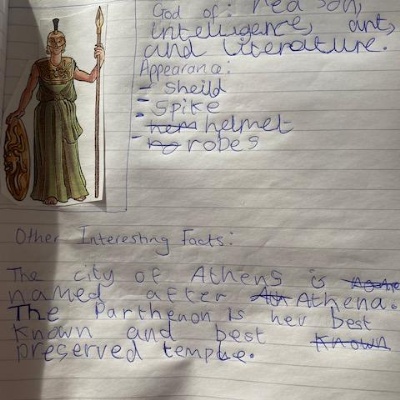 God of: reason,
intelligence, arts,
and literature.
Appearance:
- Sheild
- Spike
- hem helmet
- ro robes
Other Interesting Facts:
The city of Athens is
named after Ath Athena.
The Parthenon is her best
known and best known
preserved temple.